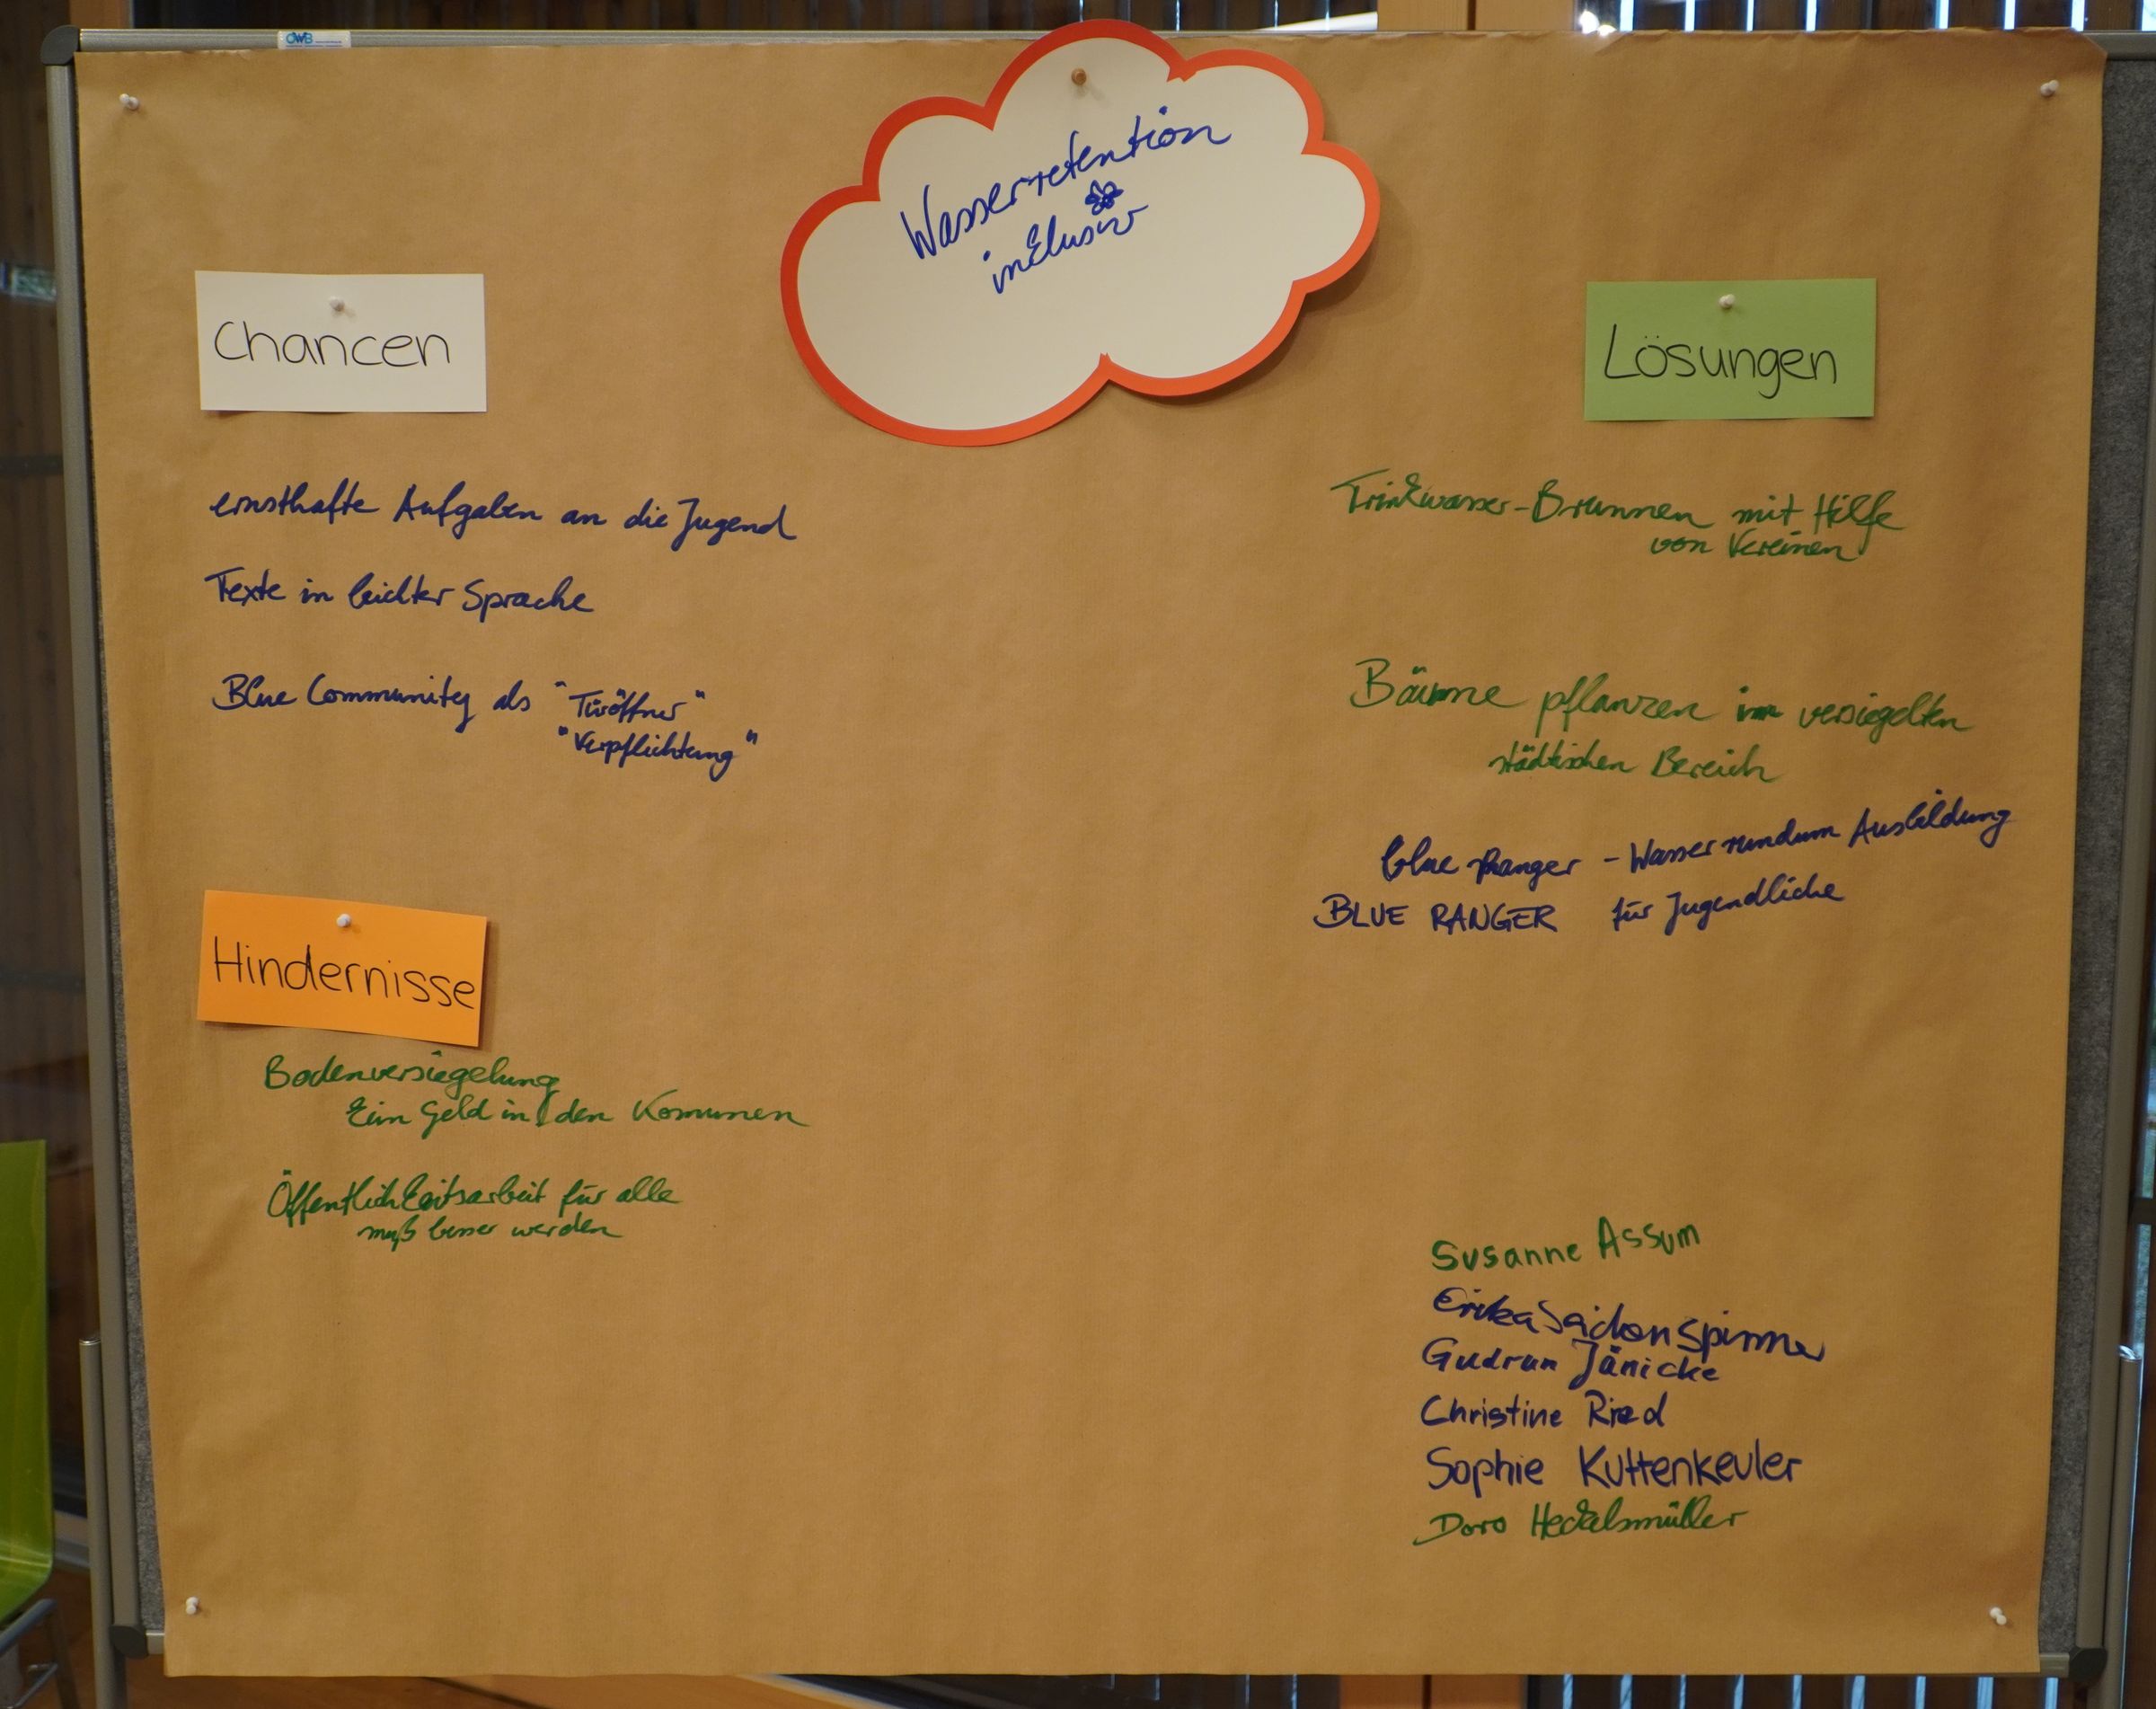 OWB
Wasserretention
inklusiv
Chancen
ernsthafte Aufgaben an die Jugend
Texte in leichter Sprache
Blue Community als "Türöffner"
"Verpflichtung"
Hindernisse
Bodenversiegelung
kein Geld in den Komunen
Öffentlichkeitsarbeit für alle
muß besser werden
Lösungen
Trinkwasser-Brunnen mit Hilfe
von Vereinen
Bäume pflanzen im versiegelten
städtischen Bereich
blue Ranger - Wasser rundum Ausbildung
BLUE RANGER für Jugendliche
Susanne Assum
Erika Seidenspinner
Gudrun Jänicke
Christine Ried
Sophie Kuttenkeuler
Doro Heckelsmüller